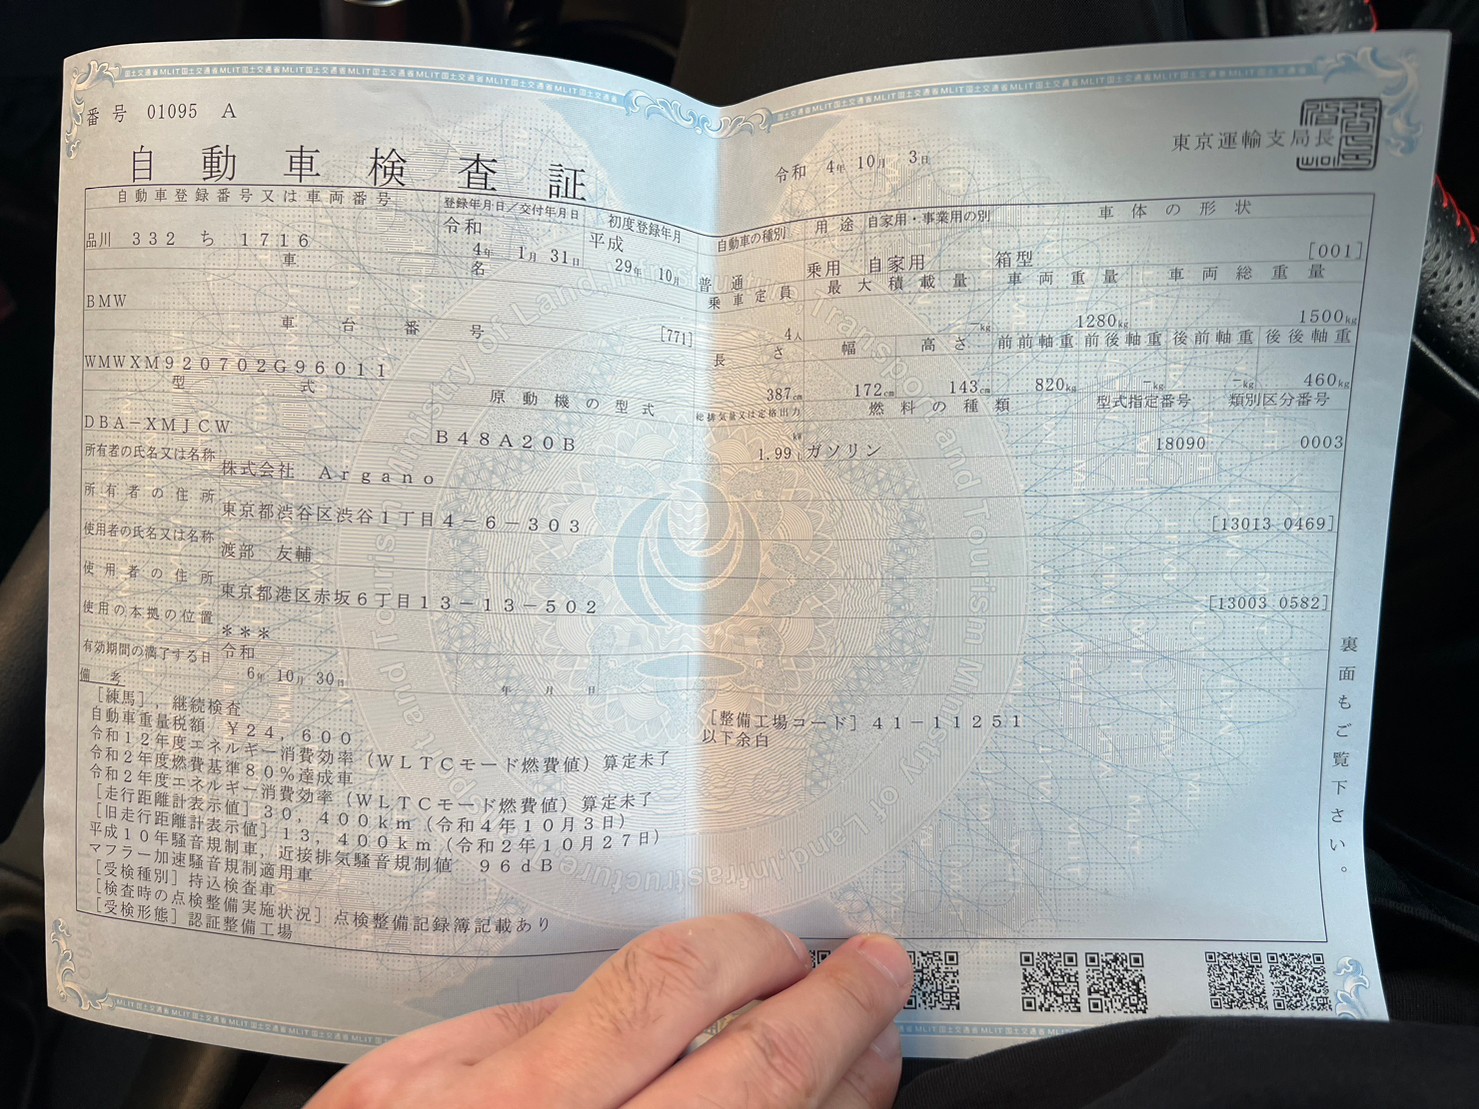 番号 01095 A
自動車検査証
令和 4年 10月 3日
東京運輸支局長
自動車登録番号又は車両番号 登録年月日/交付年月日 初度登録年月 自動車の種別 用途 自家用・事業用の別 車体の形状
品川 332 ち 1716 令和 4年 1月 31日 平成 29年 10月 普通 乗用 自家用 箱型 [001]
車名 乗車定員 最大積載量 車両重量 車両総重量
BMW [771] 4人 -kg 1280kg 1500kg
車台番号 長さ 幅 高さ 前前軸重 前後軸重 後前軸重 後後軸重
WMWXM920702G96011 387cm 172cm 143cm 820kg -kg -kg 460kg
型式 原動機の型式 総排気量又は定格出力 燃料の種類 型式指定番号 類別区分番号
DBA-XMJCW B48A20B 1.99 kW L ガソリン 18090 0003
所有者の氏名又は名称 株式会社 Argano
所有者の住所 東京都渋谷区渋谷1丁目4-6-303 [13013 0469]
使用者の氏名又は名称 渡部 友輔
使用者の住所 東京都港区赤坂6丁目13-13-502 [13003 0582]
使用の本拠の位置 ***
有効期間の満了する日 令和 6年 10月 30日 年 月 日
備考
[練馬],継続検査
自動車重量税額 ¥24,600
令和12年度エネルギー消費効率(WLTCモード燃費値)算定未了
令和2年度燃費基準80%達成車
令和2年度エネルギー消費効率(WLTCモード燃費値)算定未了
[走行距離計表示値]30,400km(令和4年10月3日)
[旧走行距離計表示値]13,400km(令和2年10月27日)
平成10年騒音規制車,近接排気騒音規制値 96dB
マフラー加速騒音規制適用車
[受検種別]持込検査車
[検査時の点検整備実施状況]点検整備記録簿記載あり
[受検形態]認証整備工場
[整備工場コード]41-11251
以下余白
裏面もご覧下さい。